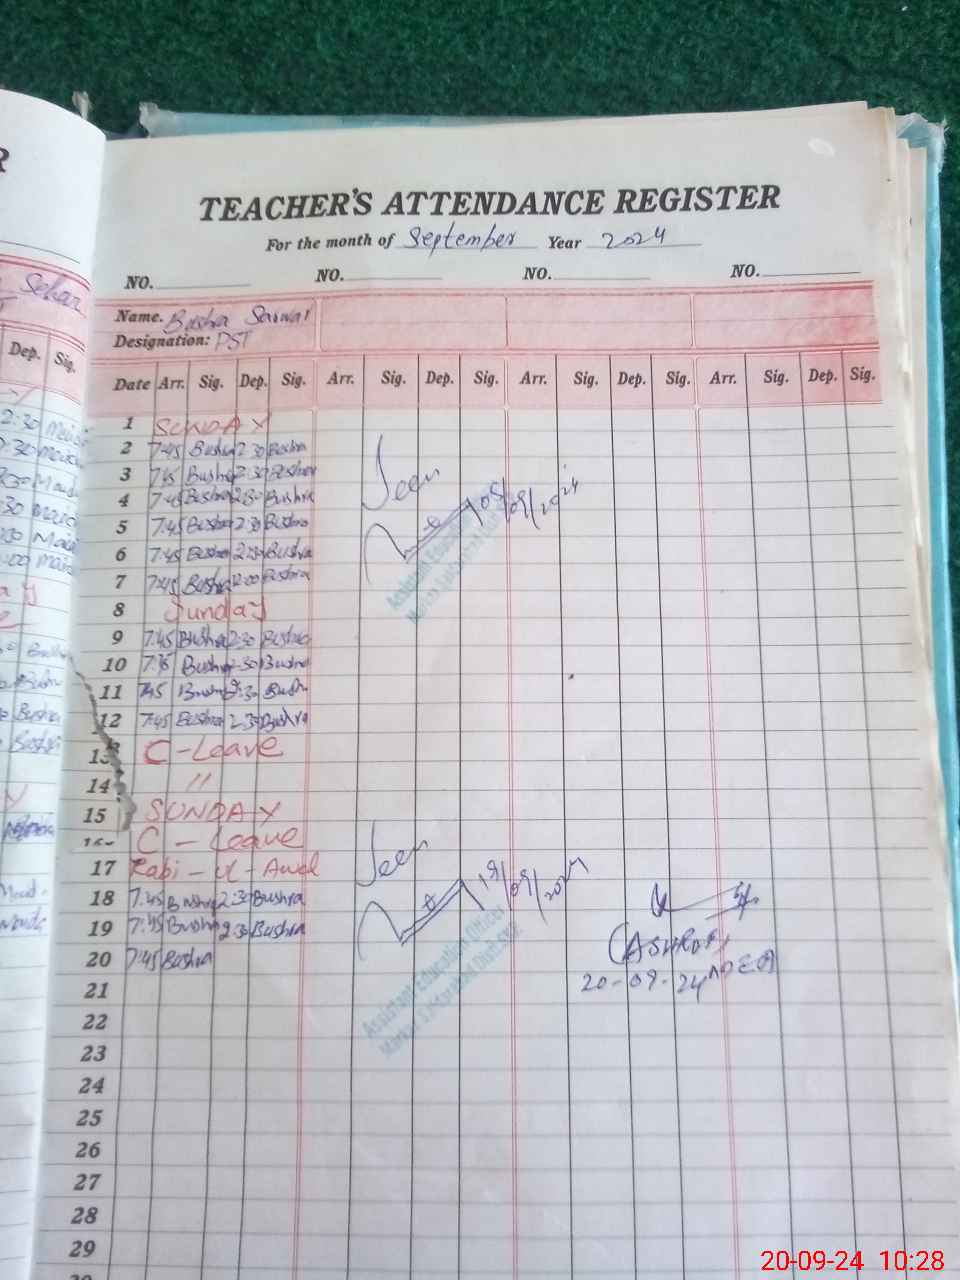 TEACHER'S ATTENDANCE REGISTER
For the month of September Year 2024
NO. NO. NO. NO.
Sehar
Name. Bushra Sarwar
Designation: PST
Dep. Sig.
Date Arr. Sig. Dep. Sig. Arr. Sig. Dep. Sig. Arr. Sig. Dep. Sig. Arr. Sig. Dep. Sig.
1 SUNDAY
2 7:45 Bushra 2:30 Bushra
3 7:45 Bushra 2:30 Bushra
4 7:45 Bushra 2:30 Bushra
5 7:45 Bushra 2:30 Bushra
6 7:45 Bushra 2:30 Bushra
7 7:45 Bushra 12:00 Bushra
Seen
05/09/2024
Assistant Education
8 Sunday
9 7:45 Bushra 2:30 Bushra
10 7:45 Bushra 2:30 Bushra
11 7:45 Bushra 2:30 Bushra
12 7:45 Bushra 2:30 Bushra
13 C-Leave
14 "
15 SUNDAY
16 C - Leave
17 Rabi - ul - Awal
18 7:45 Bushra 2:30 Bushra
19 7:45 Bushra 2:30 Bushra
20 7:45 Bushra
Seen
19/09/2024
Assistant Education Officer
(ASHRAF)
20-09-24
21
22
23
24
25
26
27
28
29
20-09-24 10:28